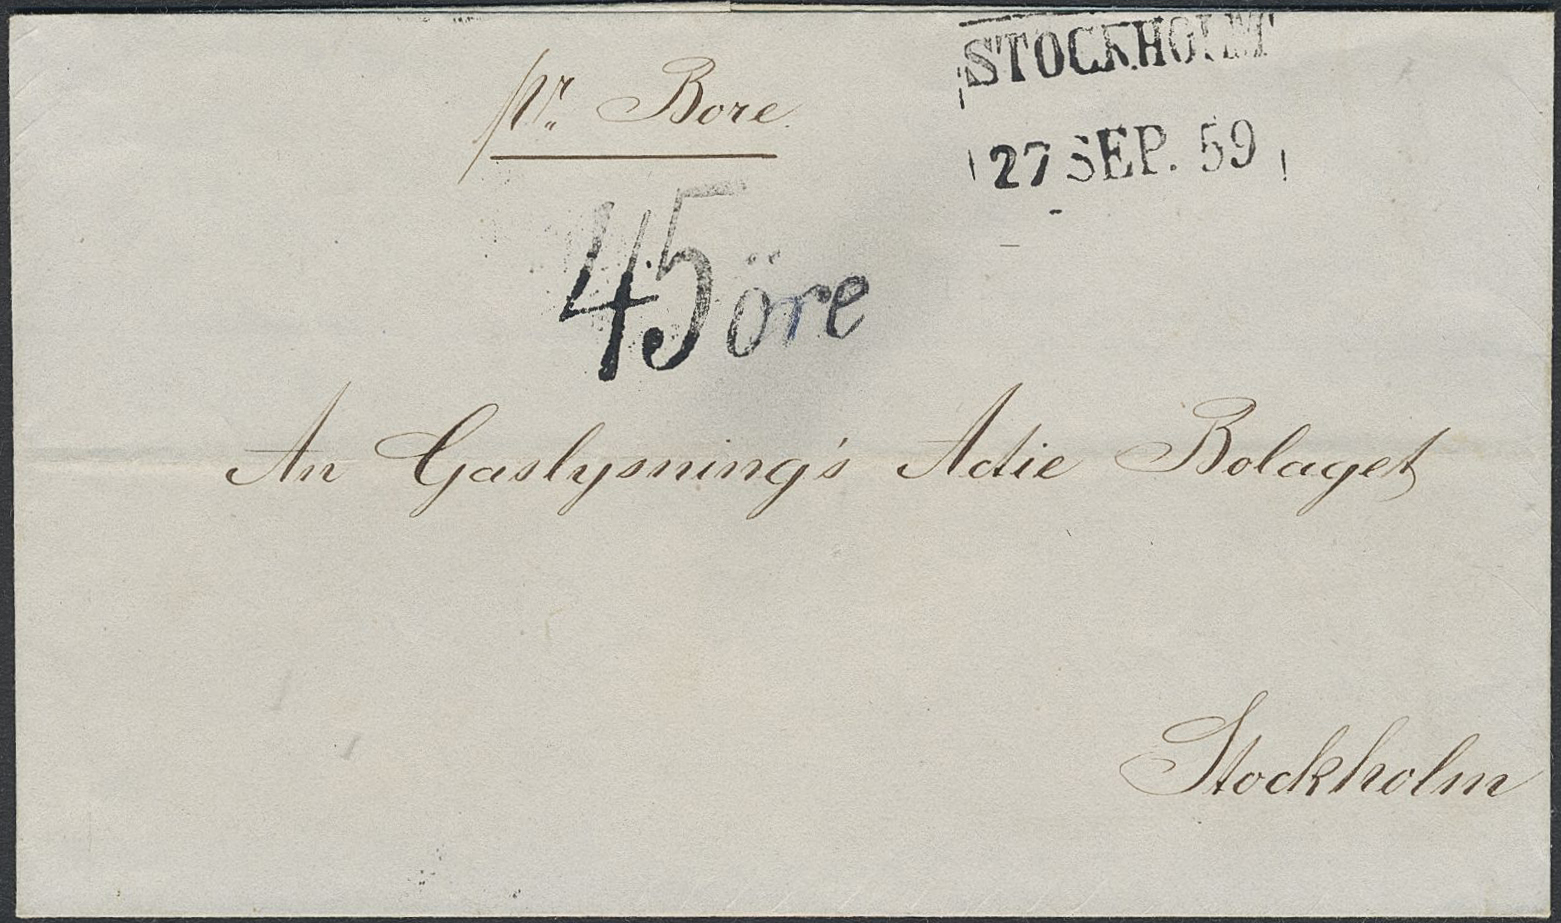 pr. Bore
STOCKHOLM
27 SEP. 59
45 öre
An Gaslysning's Actie Bolaget
Stockholm